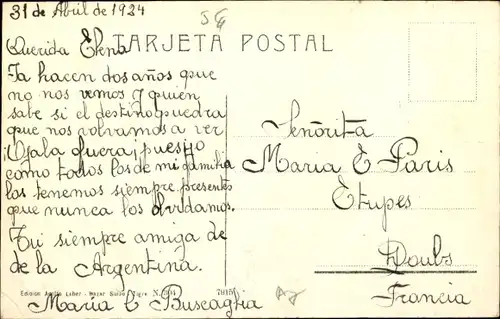 31 de Abril de 1924
TARJETA POSTAL
Querida Elena
Ya hacen dos años que
no nos vemos y quien
sabe si el destino quedra
que nos volvamos a ver
¡Ojala fuera, puesto
como todos los de mi familia
los tenemos siempre presentes
que nunca los olvidamos.
Tu siempre amiga de
de la Argentina.
María E Buscaglia
Señorita
Maria E Paris
Etupes
Doubs
Francia